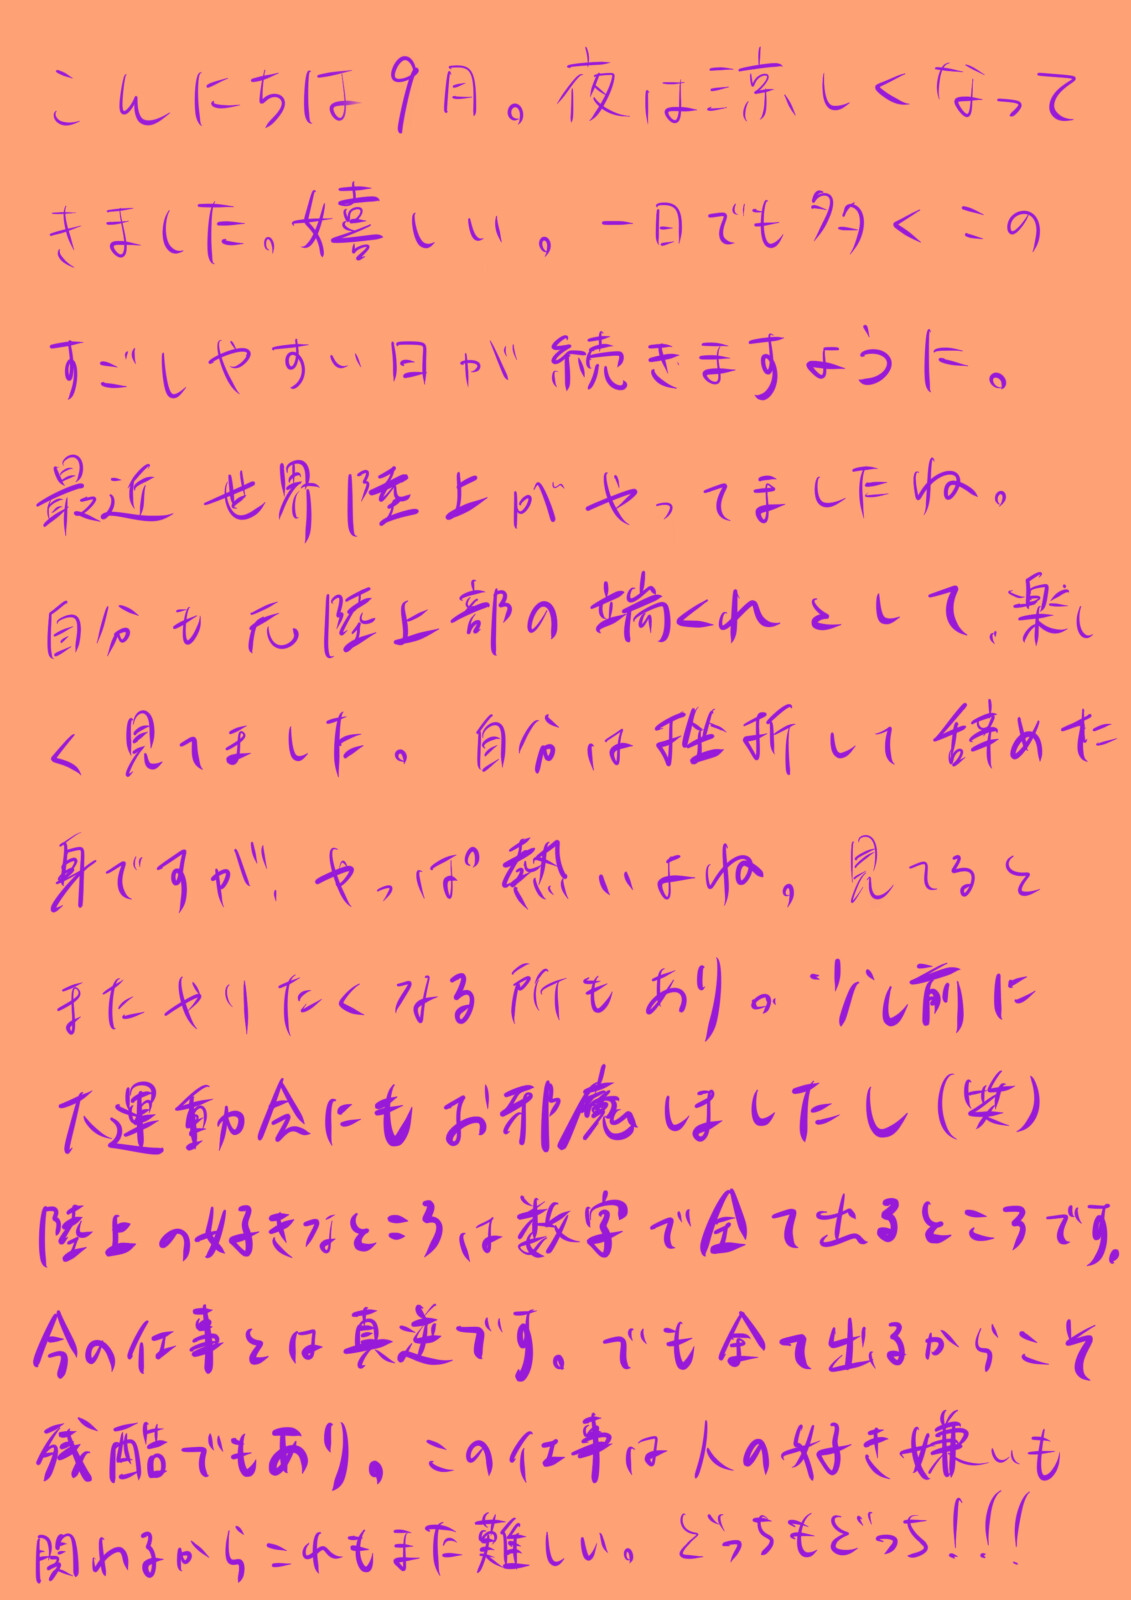 こんにちは9月。夜は涼しくなって
きました。嬉しい。一日でも多くこの
すごしやすい日が続きますように。
最近世界陸上がやってましたね。
自分も元陸上部の端くれとして、楽し
く見てました。自分は挫折して辞めた
身ですが、やっぱ熱いよね。見てると
またやりたくなる所もあり。少し前に
大運動会にもお邪魔しましたし(笑)
陸上の好きなところは数字で全て出るところです。
今の仕事とは真逆です。でも全て出るからこそ
残酷でもあり。この仕事は人の好き嫌いも
関わるからこれもまた難しい。どっちもどっち!!!